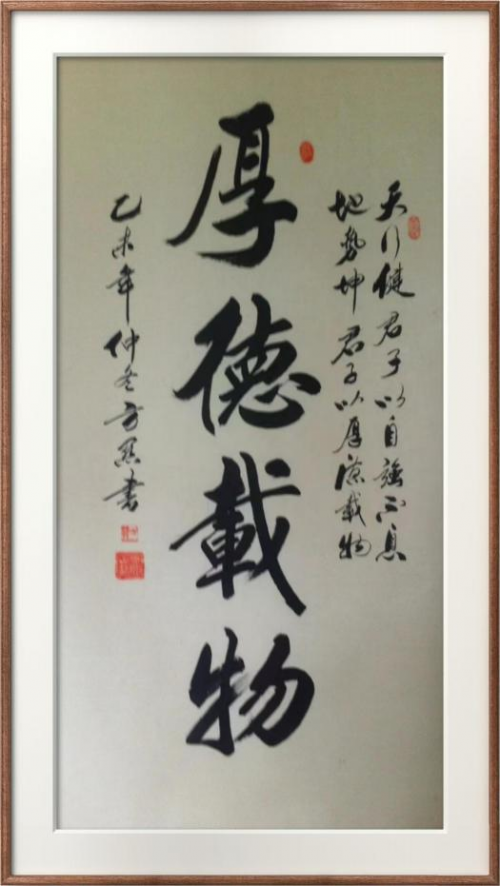 天行健君子以自強不息
地勢坤君子以厚德載物
厚德載物
乙未年仲冬方若書